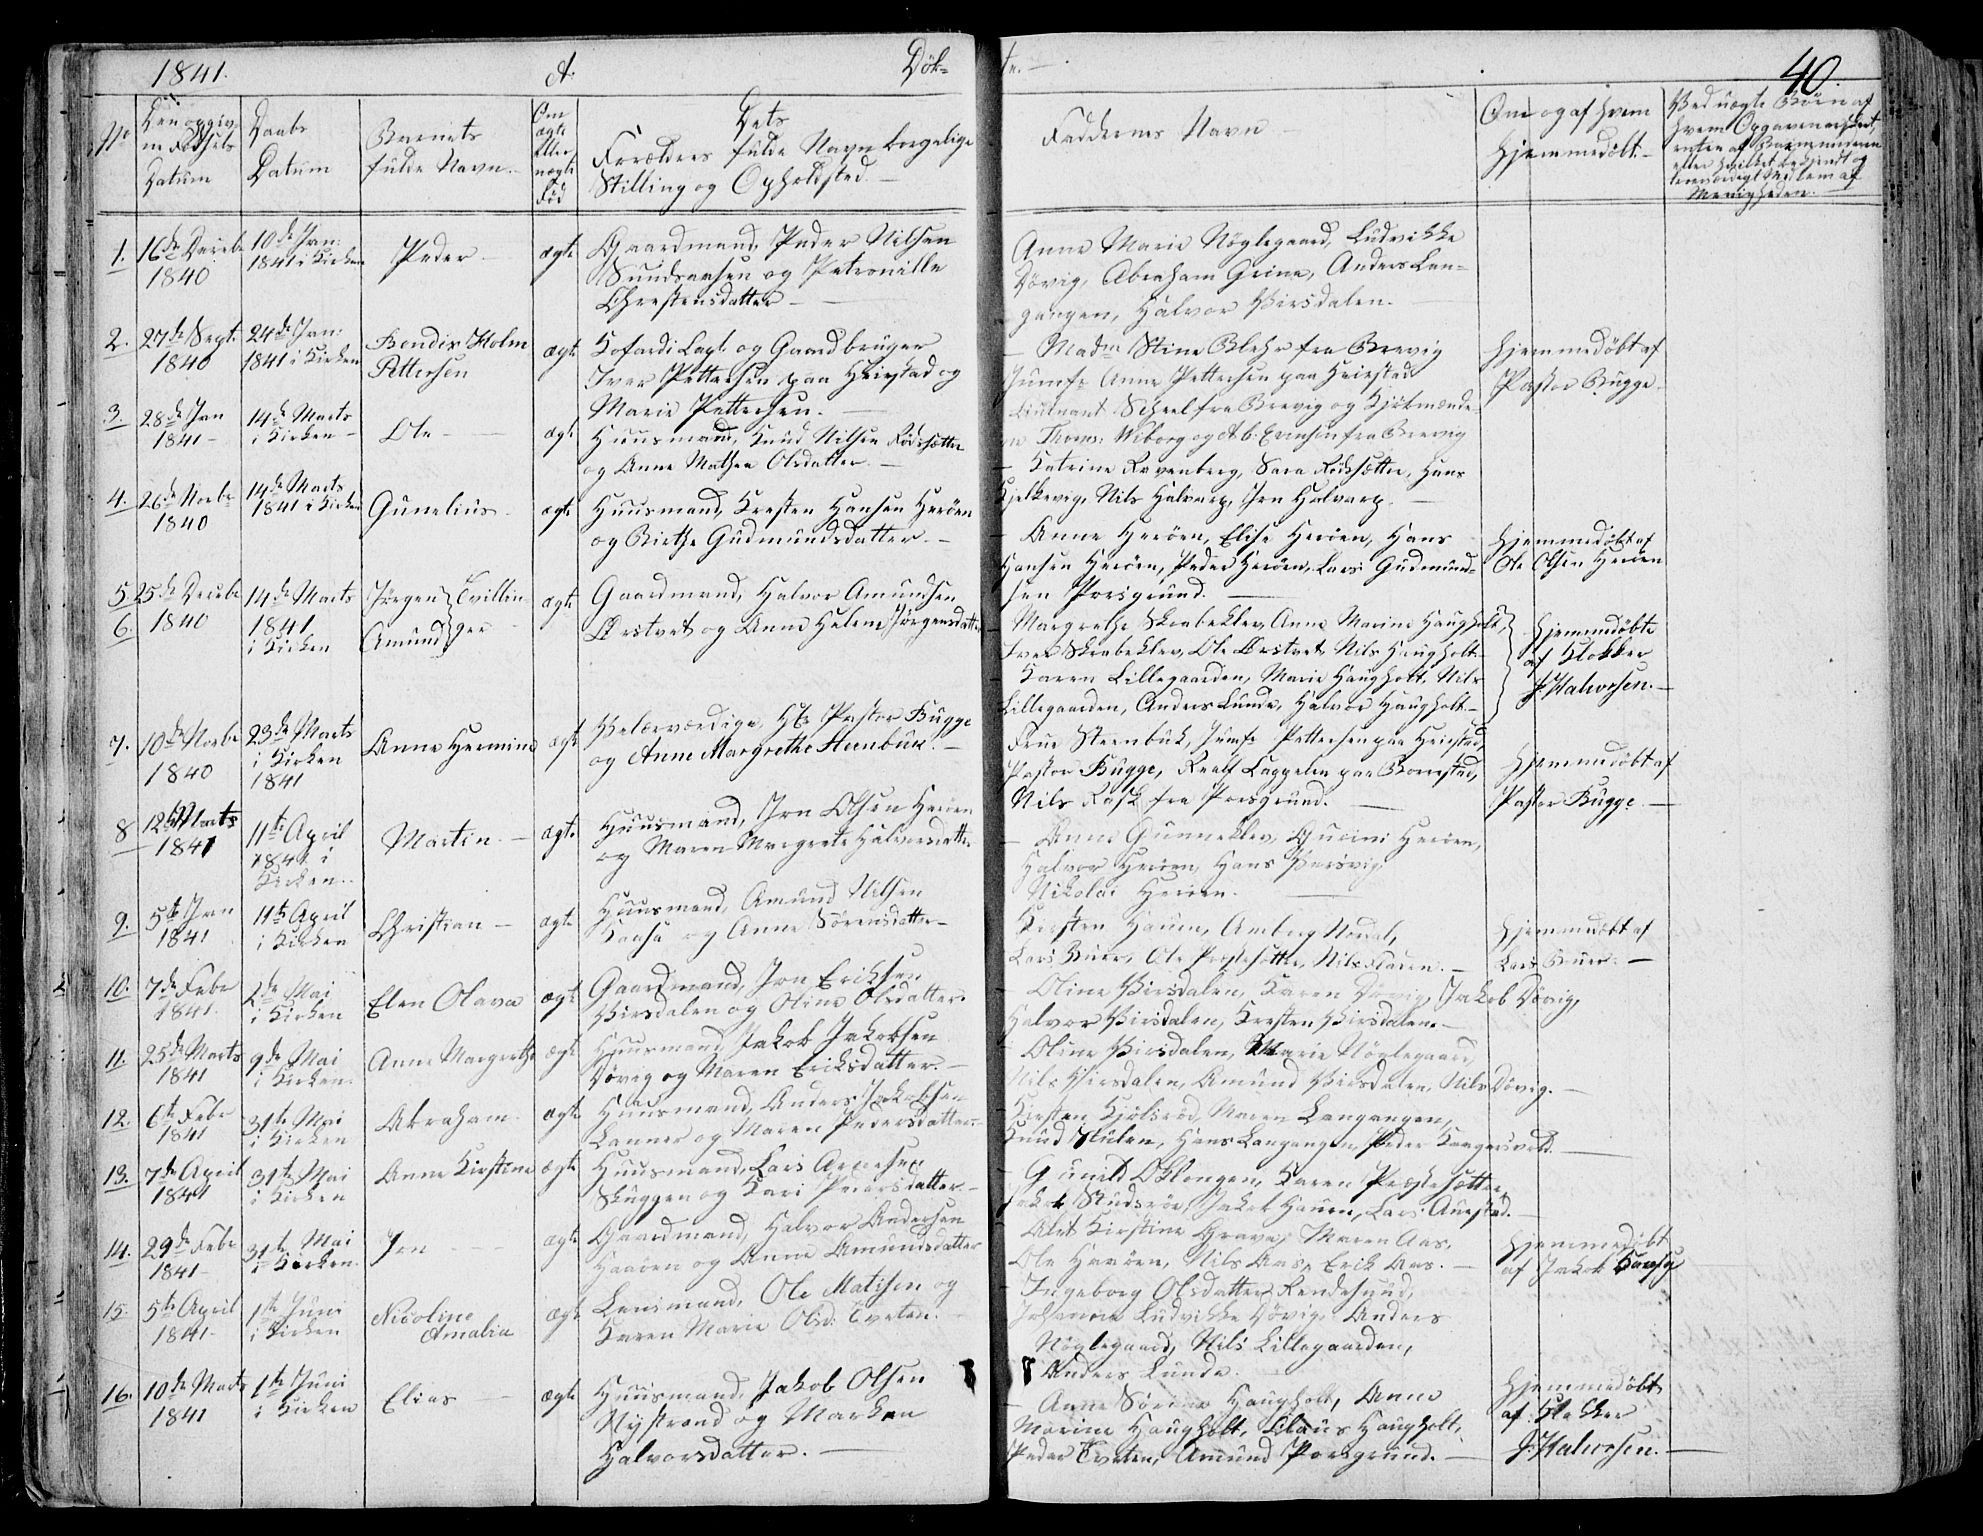 1841. A. Døb-
te.-
40.
No
Den opgiv-
ne Fødsels
Datum
Daabs
Datum
Barnets
fulde Navn.-
Om
ægte
eller
uægte
Fød
Dets
Forældres fulde Navn borgelige
Stilling og Opholdsted.-
Faddernes Navn -
Om og af hvem
hjemmedøbt.-
Ved uægte Børn af
hvem Opgaven er
eller hvilket bekjendt og
troeværdigt Medlem af
Menigheden.
1. 16de Decebr
1840
10de Jan:
1841 i Kirken
Peder -
ægte
Gaardmand, Peder Nilsen
Sundsaasen og Petronille
Christensdatter -
Anne Marie Nøglegaard, Ludvikke
Døvig, Abraham Grine, Anders Lan-
gangen, Halvor Versdalen.
2. 27de Sept.
1840
24de Jan:
1841 i Kirken
Bendix Holm
Pettersen
ægte
Kofardi Capt. og Gaardbruger
Iver Pettersen paa Heistad og
Marie Pettersen.-
- Madm Stine Blehr fra Brevig
Jumfr Anne Pettersen paa Heistad
Lieutnant Scheel fra Brevig og Kjøbmænde-
ne Thoms: Wiborg og A. B. Evensen fra Brevig
hjemmedøbt af
Pastor Bugge.
3. 28de Jan
1841 -
14de Marts
i Kirken -
Ole -
ægte
Huusmand, Knud Nilsen Rødsætter
og Anne Mathea Olsdatter.-
- Katrine Ravenberg, Sara Rødsætter, Hans
Kjelkevig, Nils Halvarp, Jon Halvarp.-
4. 26de Novbr
1840
14de Marts
1841 i Kirken
Gunelius -
ægte
Huusmand, Kresten Hansen Herøen
og Birthe Gudmundsdatter.-
- Anne Herøen, Elise Herøen, Hans
Hansen Herøen, Peder Herøen, Lars Gudmund-
sen Porsgrund.-
hjemmedøbt af
Ole Olsen Herøen
5. 25de Decebr
6. 1840
14de Marts
1841
i Kirken
Jørgen } Tvillin-
Amund } ger -
ægte
Gaardmand, Halvor Amundsen
Ørstvet og Anne Helene Jørgensdatter
Margrethe Skrabeklev, Anne Marine Haugholt,
Iver Skrabeklev, Ole Ørstvet, Nils Haugholt-
- Karen Lillegaarden, Marie Haugholt, Nils
Lillegaarden, Anders Lunde, Halvor Haugholt.-
hjemmedøbte
af Klokker
J. Halvorsen.-
7. 10de Novbr
1840
23de Marts
i Kirken
1841
Anne Hermine
ægte
Velærværdige, Hr Pastor Bugge
og Anne Margrethe Steenbuk.-
Frue Steenbuk, Jumfr Pettersen paa Heistad,
Pastor Bugge, Realf Cappelen paa Borrestad,
Nils Rask fra Porsgrund.-
hjemmedøbt af
Pastor Bugge.-
8 12te Marts
1841
11te April
1841 i
Kirken.
Martin.-
ægte
Huusmand, Jon Olsen Herøen
og Maren Margrete Halvorsdatter
- Anne Gunneklev, Gurine Herøen,
Halvor Herøen, Hans Versvig,
Nikolai Herøen.-
9. 5te Jan
1841
11te April
i Kirken
Christian -
ægte
Huusmand, Amund Nilsen
Kaasa og Anne Sørensdatter-
Kirsten Hauen, Amborg Nordal,
Lars Buer, Ole Prestesætter, Nils Hauen.-
hjemmedøbt af
Lars Buer.-
10. 7de Febr
1841.
2de Mai
i Kirken
Elen Olava
ægte
Gaardmand, Jon Eriksen
Versdalen og Oline Olsdatter.
- Oline Versdalen, Karen Døvig, Jakob Døvig,
Halvor Versdalen, Kresten Versdalen.-
11. 25de Marts
1841
9de Mai
i Kirken
Anne Margrethe
ægte
Huusmand Jakob Jakobsen
Døvig og Maren Eriksdatter.-
- Oline Versdalen, Marie Nøglegaard,
Nils Versdalen, Amund Versdalen, Nils Døvig.-
12. 6te Febr
1841
31te Mai
i Kirken
Abraham
ægte
Huusmand, Anders Jakobsen
Lanner og Maren Pedersdatter-
- Kirsten Kjølsrød, Maren Langangen,
Knud Skulen, Hans Langangen, Peder Kaagersvold.-
13. 7de April
1841
31te Mai
i Kirken
Anne Kirstine
ægte
Huusmand, Lars Arnesen
Skuggen og Kari Pedersdatter-
- Gunild Oklongen, Karen Prestesætter,
Jakob Rudsrøe, Jakob Hauen, Lars Auestad.-
14. 29de Febr
1841 -
31te Mai
i Kirken
Jon - -
ægte
Gaardmand, Halvor Andersen
Haaøen og Anne Amundsdatter
Alet Kirstine Grava, Maren Aas,
Ole Haaøen, Nils Aas, Erik Aas.-
hjemmedøbt
af Jakob Kaasa
15. 5te April
1841.
1te Juni
i Kirken
Nicoline
Amalia
ægte
Lensmand, Ole Matisen og
Karen Marie Olsd: Tveten.
- Ingeborg Olsdatter Rendesund,
Johanne Ludvikke Døvig, Anders
Nøglegaard, Nils Lillegaarden,
Anders Lunde.
16. 10de Marts
1841
1te Juni
i Kirken
Elias -
ægte
Huusmand, Jakob Olsen
Nystrand og Marken
Halvorsdatter.-
- Anne Sørine Haugholt, Anne
Marine Haugholt, Claus Haugholt,
Peder Tveten, Amund Porsgrund.-
hjemmedøbt
af Klokker
J. Halvorsen.-